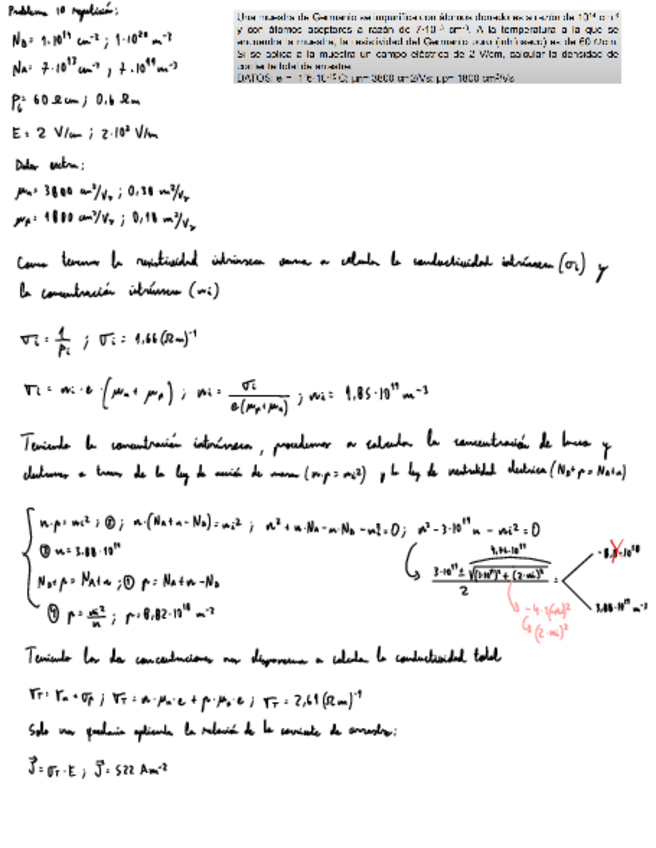 Problema 10 repetición:
Una muestra de Germanio se impurifica con átomos donadores a razón de 10¹⁴ cm⁻³
y con átomos aceptores a razón de 7·10¹³ cm⁻³. A la temperatura a la que se
encuentra la muestra, la resistividad del Germanio puro (intrínseco) es de 60 Ωcm.
Si se aplica a la muestra un campo eléctrico de 2 V/cm, calcular la densidad de
corriente total de arrastre.
DATOS: e = 1'6·10⁻¹⁹ C; μn= 3800 cm2/Vs; μp= 1800 cm²/Vs
N_D = 1·10¹⁴ cm⁻³ ; 1·10²⁰ m⁻³
N_A = 7·10¹³ cm⁻³ ; 7·10¹⁹ m⁻³
ρi = 60 Ωcm ; 0,6 Ωm
E = 2 V/cm ; 2·10² V/m
Datos extra:
μn = 3800 cm²/Vs ; 0,38 m²/Vs
μp = 1800 cm²/Vs ; 0,18 m²/Vs
Como tenemos la resistividad intrínseca vamos a calcular la conductividad intrínseca (σi) y
la concentración intrínseca (ni)
σi = 1/ρi ; σi = 1,66 (Ωm)⁻¹
σi = ni · e · (μn + μp) ; ni = σi / e(μp+μn) ; ni = 1,85·10¹⁹ m⁻³
Teniendo la concentración intrínseca, procedemos a calcular la concentración de huecos y
electrones a traves de la ley de acción de masas (n·p = ni²) y la ley de neutralidad electrica (N_D+p = N_A+n)
n·p = ni² ; ② ; n·(N_A+n-N_D) = ni² ; n² + n·N_A - n·N_D - ni² = 0 ; n² - 3·10¹⁹ n - ni² = 0
③ n = 3,88·10¹⁹
N_D+p = N_A+n ; ① p = N_A+n-N_D
④ p = ni²/n ; p = 8,82·10¹⁸ m⁻³
4,76·10¹⁹
3·10¹⁹ ± √(3·10¹⁹)² + (2·ni)² / 2 =
3,88·10¹⁹ m⁻³
(2·ni)²
Teniendo las dos concentraciones nos disponemos a calcular la conductividad total
σT = σn + σp ; σT = n·μn·e + p·μp·e ; σT = 2,61 (Ωm)⁻¹
Solo nos quedaria aplicarle la relación de la corriente de arrastre:
J = σT · E ; J = 522 Am⁻²